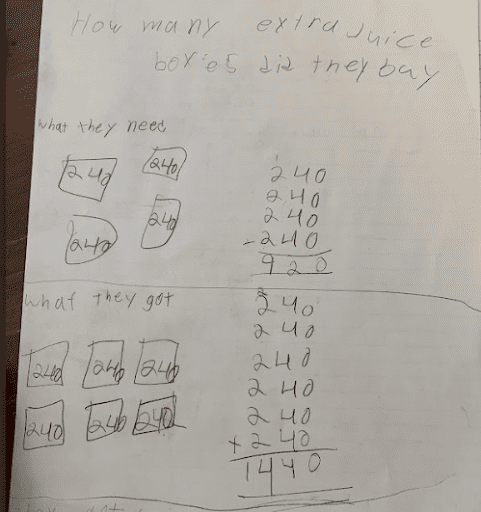 How many extra Juice
boxes did they buy
what they need
240 240
240 240
240
240
240
-240
920
what they got
240 240 240
240 240 240
2
240
240
240
240
240
+240
1440